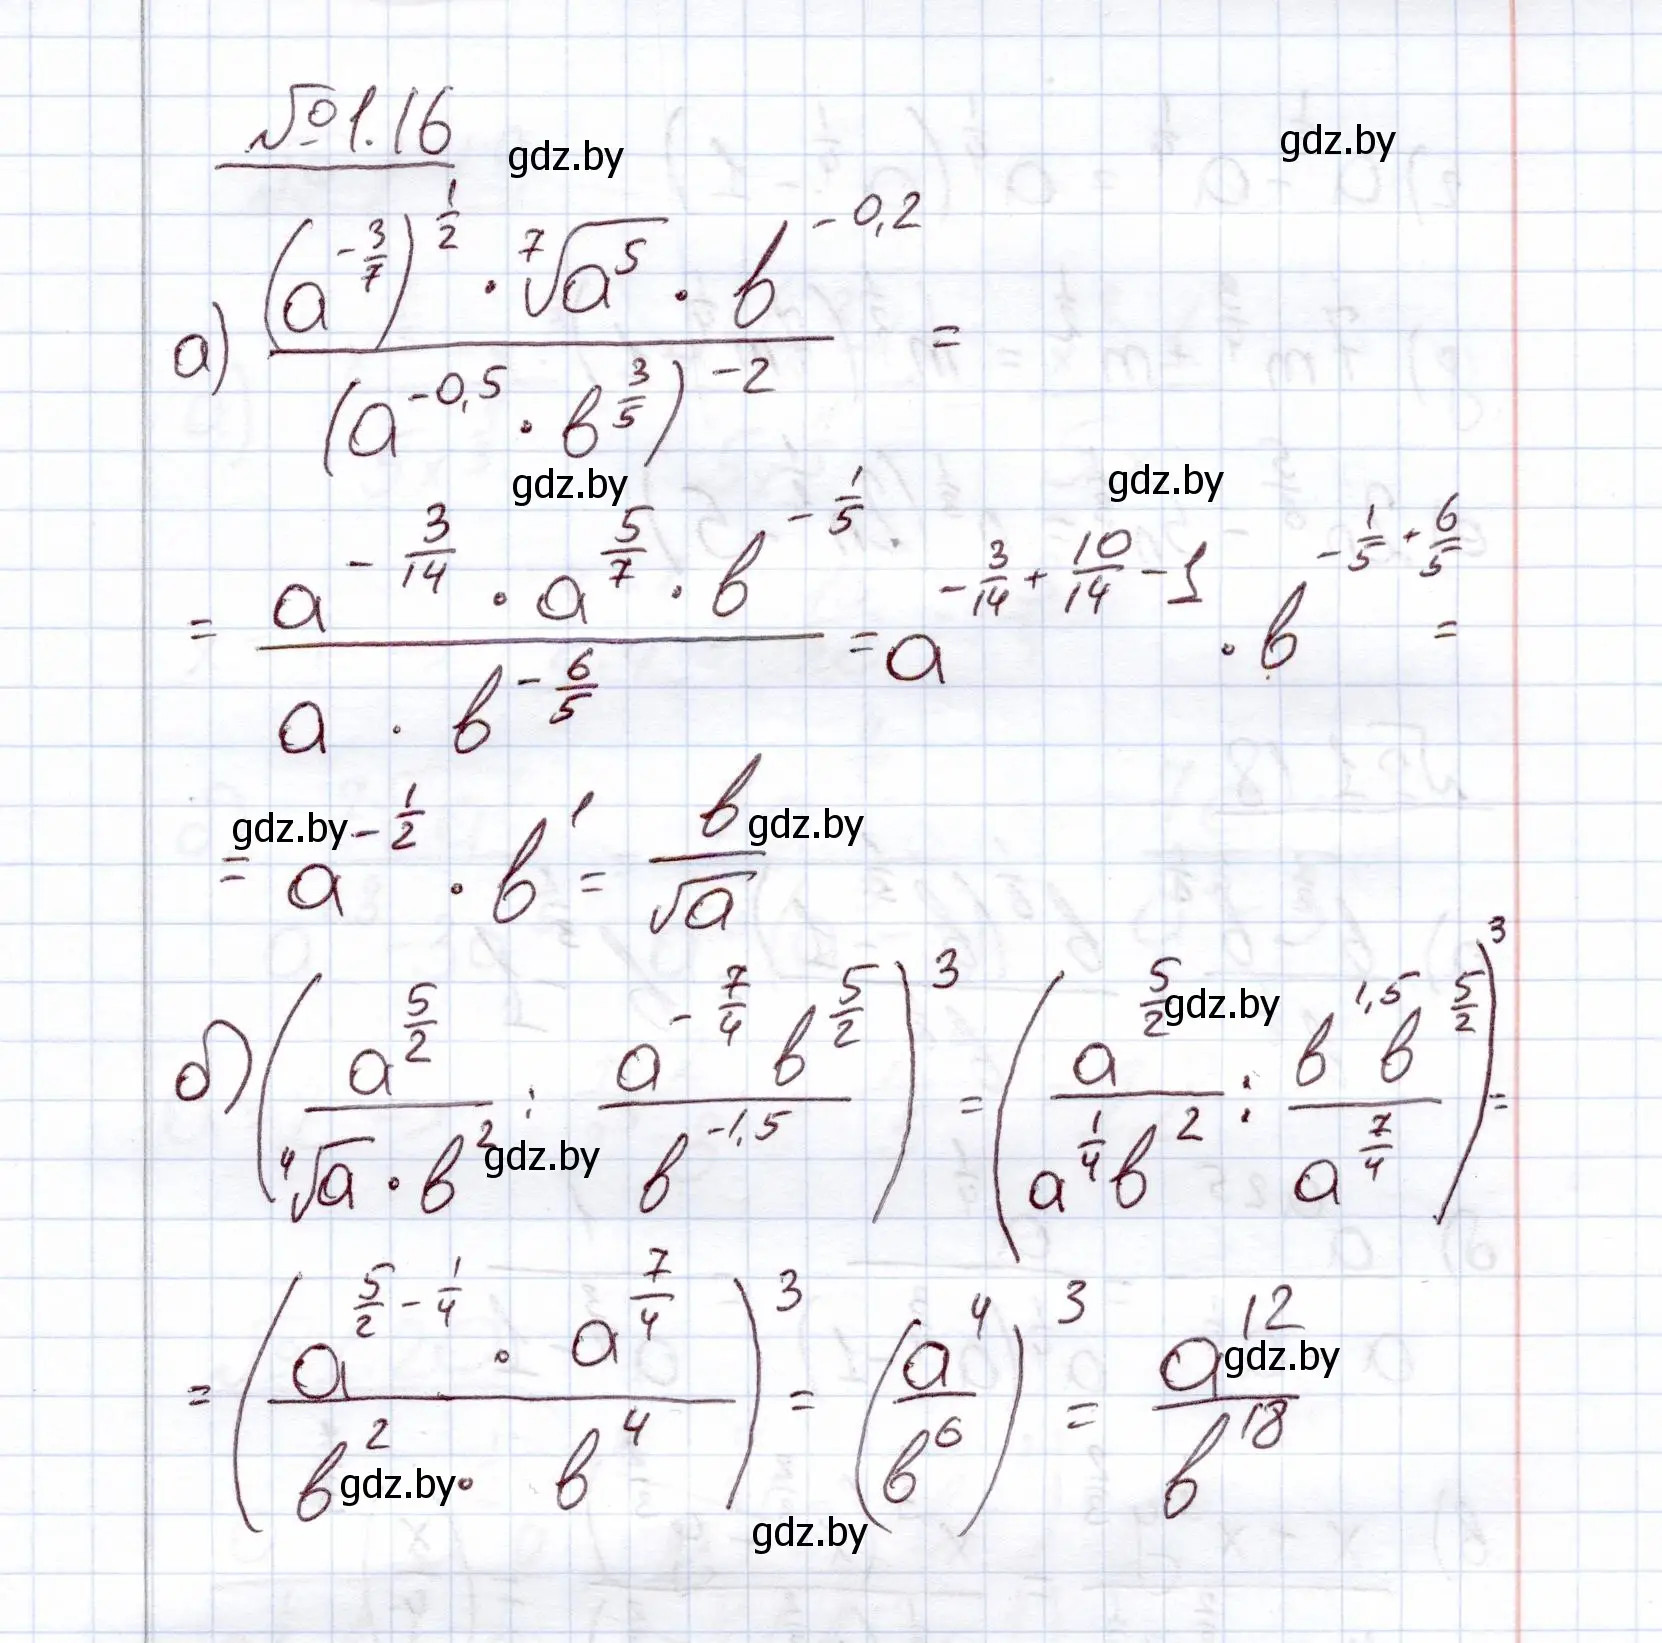 № 1.16
gdz.by
gdz.by
а) ((a^(-3/7))^(1/2) · ⁷√(a^5) · b^(-0,2)) / (a^(-0,5) · b^(3/5))^(-2) =
gdz.by
gdz.by
= (a^(-3/14) · a^(5/7) · b^(-1/5)) / (a · b^(-6/5)) = a^(-3/14 + 10/14 - 1) · b^(-1/5 + 6/5) =
gdz.by
gdz.by
= a^(-1/2) · b^1 = b/√a
б) (a^(5/2) / (⁴√a · b^2) : (a^(-7/4) b^(5/2)) / b^(-1,5))^3 = (a^(5/2) / (a^(1/4) b^2) : (b^(1,5) b^(5/2)) / a^(7/4))^3 =
gdz.by
gdz.by
= ((a^(5/2 - 1/4) · a^(7/4)) / (b^2 · b^4))^3 = (a^4 / b^6)^3 = a^12 / b^18
gdz.by
gdz.by
gdz.by